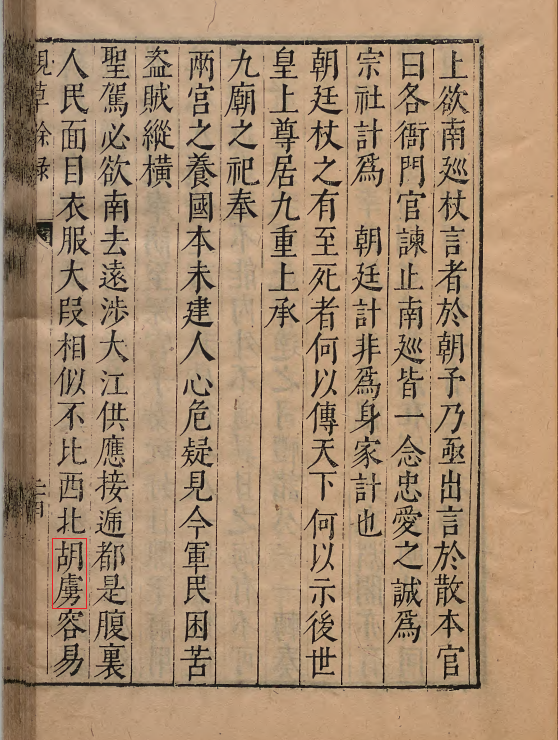 上欲南廵杖言者於朝予乃亟出言於散本官
曰各衙門官諫止南廵皆一念忠愛之誠為
宗社計爲　朝廷計非爲身家計也
朝廷杖之有至死者何以傳天下何以示後世
皇上尊居九重上承
九廟之祀奉
兩宮之養國本未建人心危疑見今軍民困苦
盗賊縱橫
聖駕必欲南去遠涉大江供應接逓都是腹裏
人民面目衣服大段相似不比西北胡虜容易